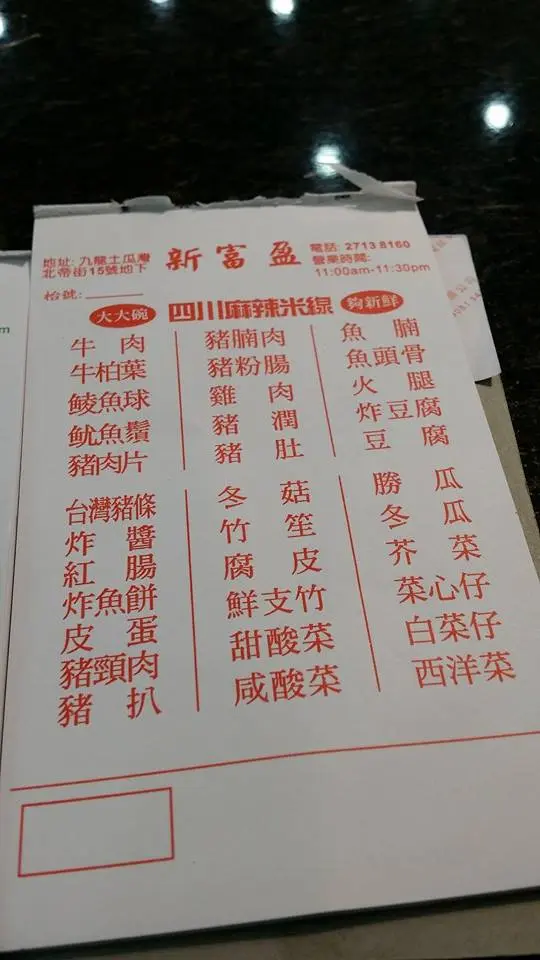 地址: 九龍土瓜灣
北帝街15號地下
新富盈
電話: 2713 8160
營業時間:
11:00am-11:30pm
枱號:
大大碗
四川麻辣米線
夠新鮮
牛肉
牛柏葉
鯪魚球
魷魚鬚
豬肉片
豬腩肉
豬粉腸
雞肉
豬潤
豬肚
魚腩
魚頭骨
火腿
炸豆腐
豆腐
台灣豬條
炸醬
紅腸
炸魚餅
皮蛋
豬頸肉
豬扒
冬菇
竹笙
腐皮
鮮支竹
甜酸菜
咸酸菜
勝瓜
冬瓜
芥菜
菜心仔
白菜仔
西洋菜